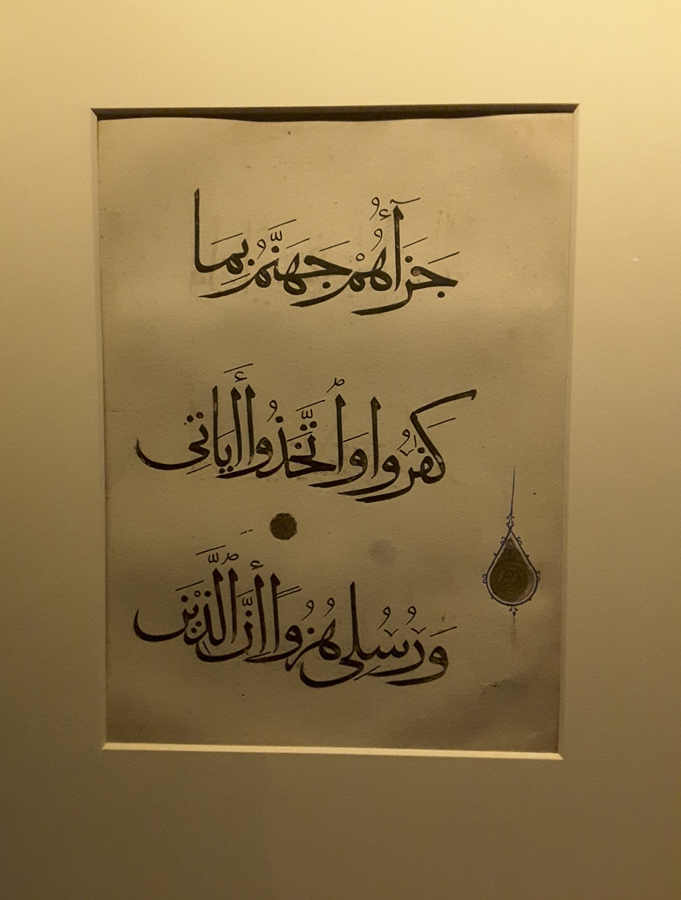 جَزَآؤُهُمْ جَهَنَّمُ بِمَا
كَفَرُوا وَٱتَّخَذُوٓا أَيَاتِى
وَرُسُلِى هُزُوًا إِنَّ ٱلَّذِيْنَ